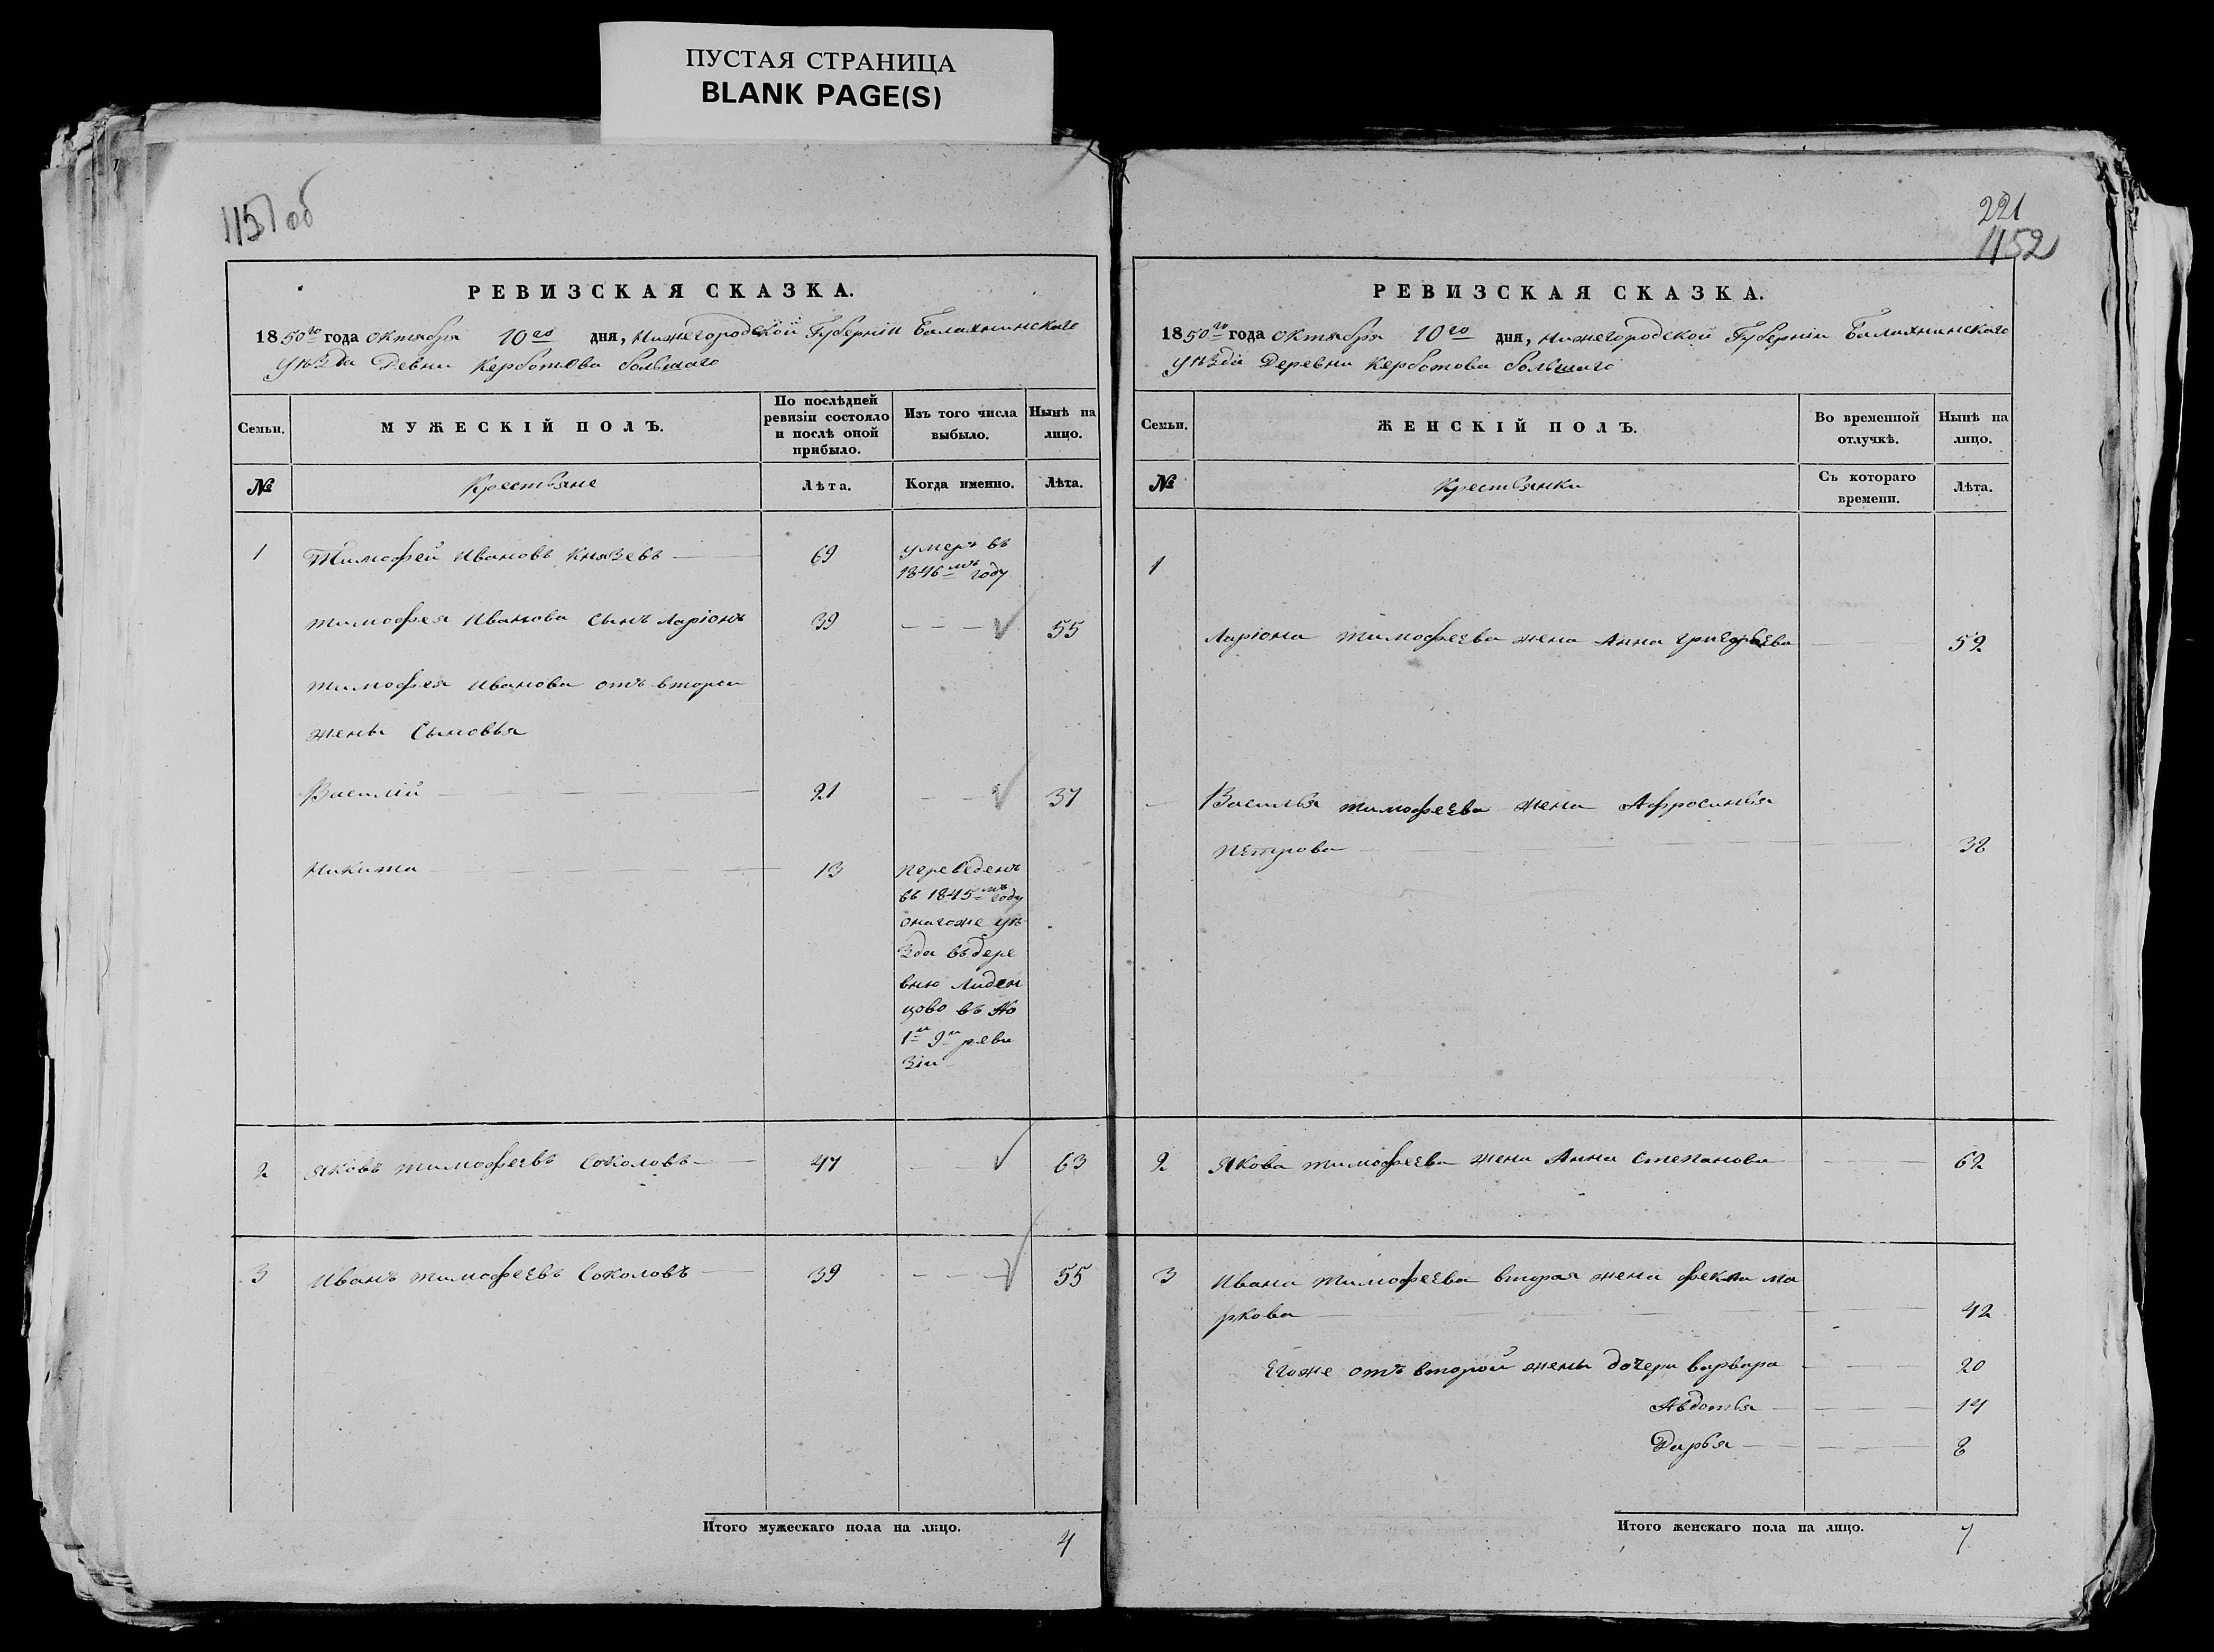 ПУСТАЯ СТРАНИЦА
BLANK PAGE(S)
1151 об
РЕВИЗСКАЯ СКАЗКА.
1850го года Октября 10го дня, Нижегородской Губерніи Балахнинскаго
Уѣзда Девни Керботова большаго
Семьи.
МУЖЕСКІЙ ПОЛЪ.
По послѣдней ревизіи состояло и послѣ оной прибыло.
Изъ того числа выбыло.
Нынѣ на лицо.
№
Крестьяне
Лѣта.
Когда именно.
Лѣта.
1 Тимофей Ивановъ Князевъ 69 умеръ въ
1846мъ году
Тимофея Иванова сынъ Ларіонъ 39 55
Тимофея Иванова отъ вторы
жены Сыновья
Василій 21 37
Никита 13 переведенъ
въ 1845мъ году
онагоже уѣ
зда въ дере
вню
цово въ №
1й 9й реви
зіи
2 Яковъ Тимофеевъ Соколовъ 47 63
3 Иванъ Тимофеевъ Соколовъ 39 55
Итого мужескаго пола на лицо. 4
221
1152
РЕВИЗСКАЯ СКАЗКА.
1850го года Октября 10го дня, Нижегородской Губерніи Балахнинскаго
Уѣзда Деревни Керботова большаго
Семьи.
ЖЕНСКІЙ ПОЛЪ.
Во временной отлучкѣ.
Нынѣ на лицо.
№
Крестьянки
Съ котораго времени.
Лѣта.
1
Ларіона Тимофеева жена Анна Григорьева 52
Василья Тимофеева жена Афросинья
Петрова 38
2 Якова Тимофеева жена Анна Степанова 62
3 Ивана Тимофеева вторая жена Фекла Ма
ркова 42
Егоже отъ второй жены дочери Варвара 20
Авдотья 14
Дарья 8
Итого женскаго пола на лицо. 7